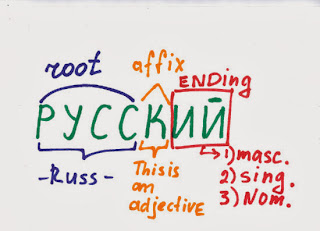 root affix ENDing
РУССКИЙ
-Russ- This is → 1) masc.
an 2) sing.
adjective 3) Nom.